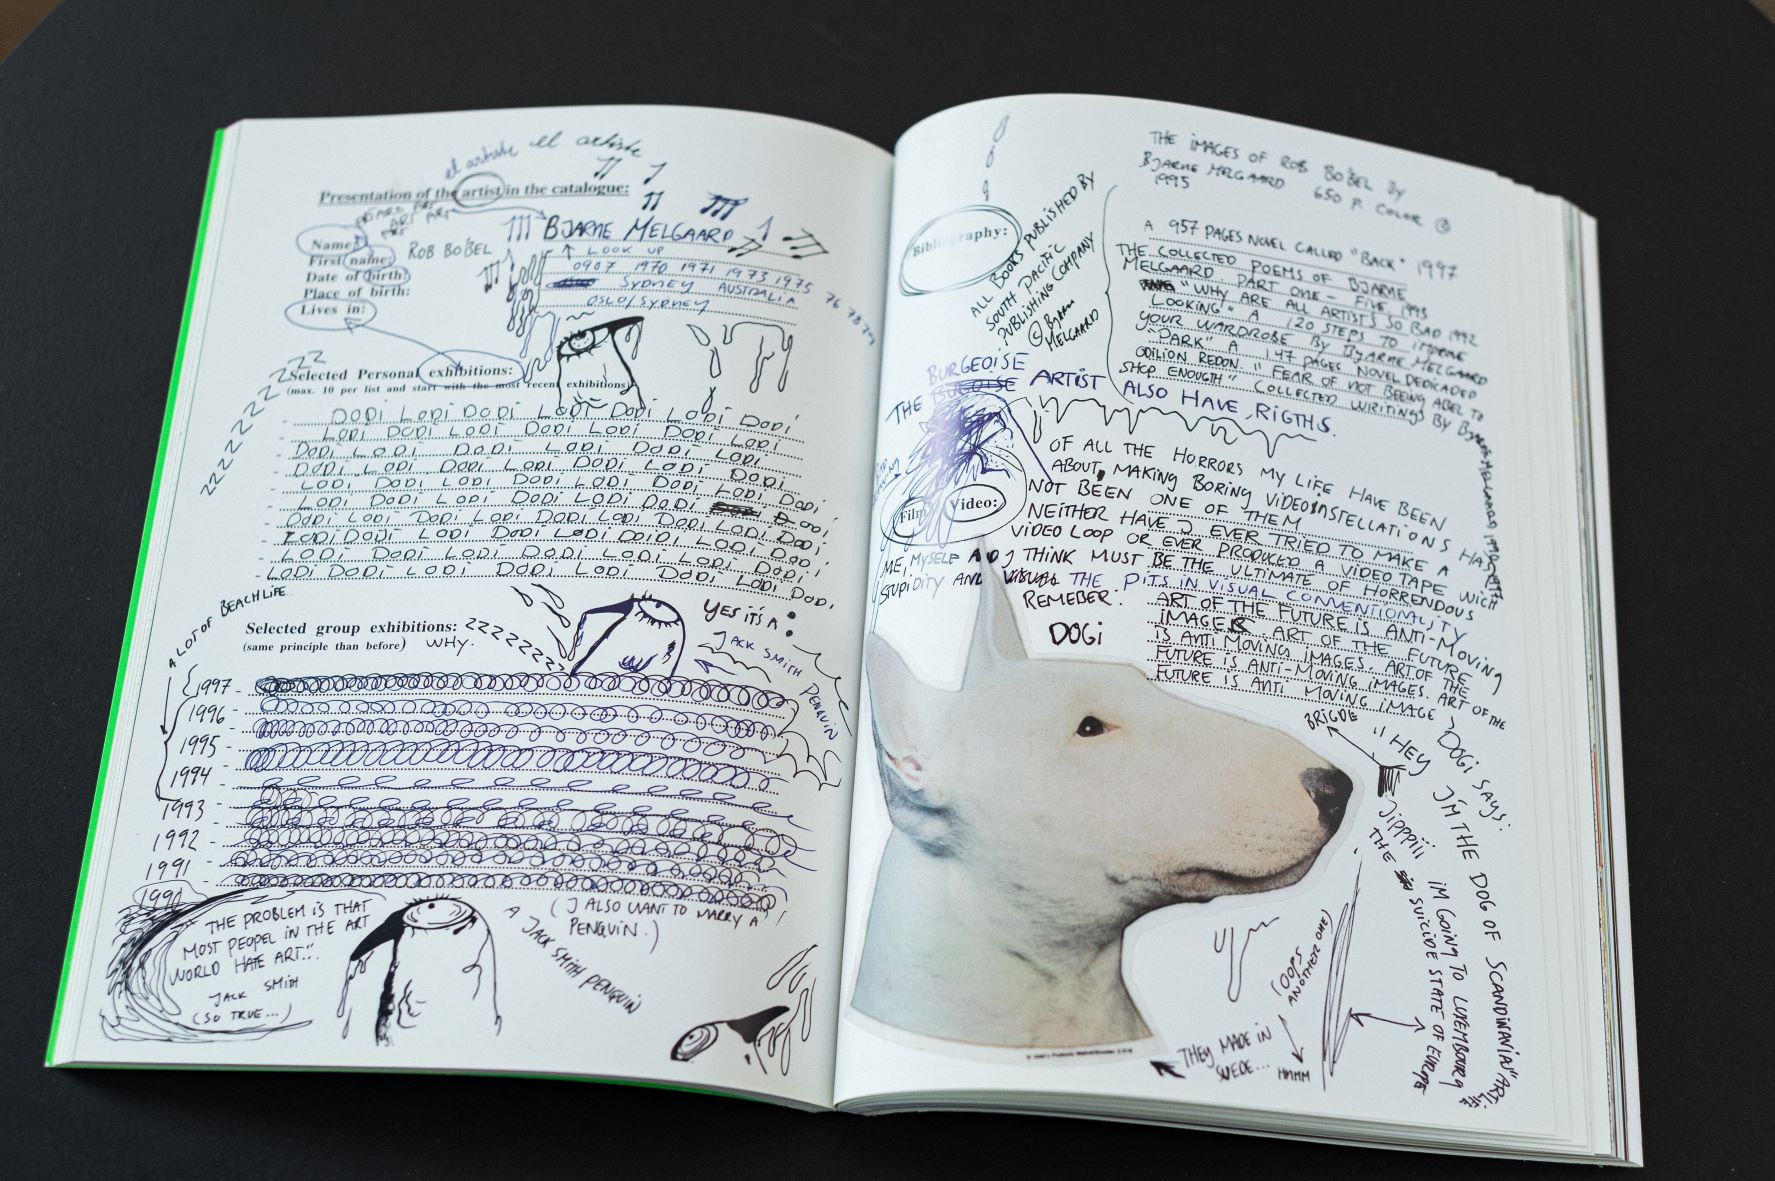 el artiste el artiste
Presentation of the artist in the catalogue:
ART ART
Name:
ROB BOBEL
BJARNE MELGAARD
First name:
LOOK UP
Date of birth:
0907 1970 1971 1973 1975 76 78 79
Place of birth:
SYDNEY AUSTRALIA
Lives in:
OSLO/SYDNEY
ZZZZZZZZZZ
Selected Personal exhibitions:
(max. 10 per list and start with the most recent exhibitions)
DODI LODI DODI LODI DODI LODI DODI
LODI DODI LODI DODI LODI DODI LODI
DODI LODI DODI LODI DODI LODI
DODI LODI DODI LODI DODI LODI DODI
LODI DODI LODI DODI LODI DODI LODI DODI
LODI DODI LODI DODI LODI DODI
DODI LODI DODI LODI DODI LODI DODI LODI DODI
LODI DODI LODI DODI LODI DODI LODI DODI
LODI DODI LODI DODI LODI DODI LODI DODI
LODI DODI LODI DODI LODI DODI LODI DODI
A LOT OF BEACHLIFE
Selected group exhibitions:
(same principle than before) WHY.
ZZZZZZZZZZ
YES IT'S A:
JACK SMITH PENGUIN
1997 -
1996 -
1995 -
1994 -
1993 -
1992 -
1991 -
1990
THE PROBLEM IS THAT
MOST PEOPEL IN THE ART
WORLD HATE ART...
JACK SMITH
(SO TRUE...)
A JACK SMITH PENGUIN
(I ALSO WANT TO MARRY A
PENGUIN.)
THE IMAGES OF ROB BOBEL BY
BJARNE MELGAARD 650 P. COLOR
1995
Bibliography:
ALL BOOKS PUBLISHED BY
SOUTH PACIFIC
PUBLISHING COMPANY
© Bjarne
MELGAARD
A 957 PAGES NOVEL CALLED "BACK" 1997
THE COLLECTED POEMS OF BJARNE
MELGAARD PART ONE - FIVE, 1995
"WHY ARE ALL ARTISTS SO BAD 1992
LOOKING" A 120 STEPS TO IMPROVE
YOUR WARDROBE BY BJARNE MELGAARD
"PARK" A 147 PAGES NOVEL DEDICADED
ODILION REDON. "FEAR OF NOT BEEING ABEL TO
SHOP ENOUGTH" COLLECTED WRITINGS BY BJARNE MELGAARD
BURGEOISE
THE ARTIST ALSO HAVE RIGTHS.
Film Video:
OF ALL THE HORRORS MY LIFE HAVE BEEN
ABOUT, MAKING BORING VIDEOINSTELLATIONS HAS
NOT BEEN ONE OF THEM
NEITHER HAVE I EVER TRIED TO MAKE A
VIDEO LOOP OR EVER PRODUCED A VIDEO TAPE WICH
I THINK MUST BE THE ULTIMATE OF HORRENDOUS
THE PITS IN VISUAL CONVENTIONALITY
ME, MYSELF AND
STUPIDITY AND
REMEBER:
DOGI
ART OF THE FUTURE IS ANTI-MOVING
IMAGES. ART OF THE FUTURE
IS ANTI MOVING IMAGES. ART OF THE
FUTURE IS ANTI-MOVING IMAGES. ART OF THE
FUTURE IS ANTI MOVING IMAGE
BRIGDE
DOGI SAYS:
"HEY I'M THE DOG OF SCANDINAVIAN
JIPPPIII IM GOING TO LUXEMBOURG
THE SUICIDE STATE OF EUROPE
(OOPS
ANOTHER ONE)
HMMM
THEY MADE IN
SWEDE...